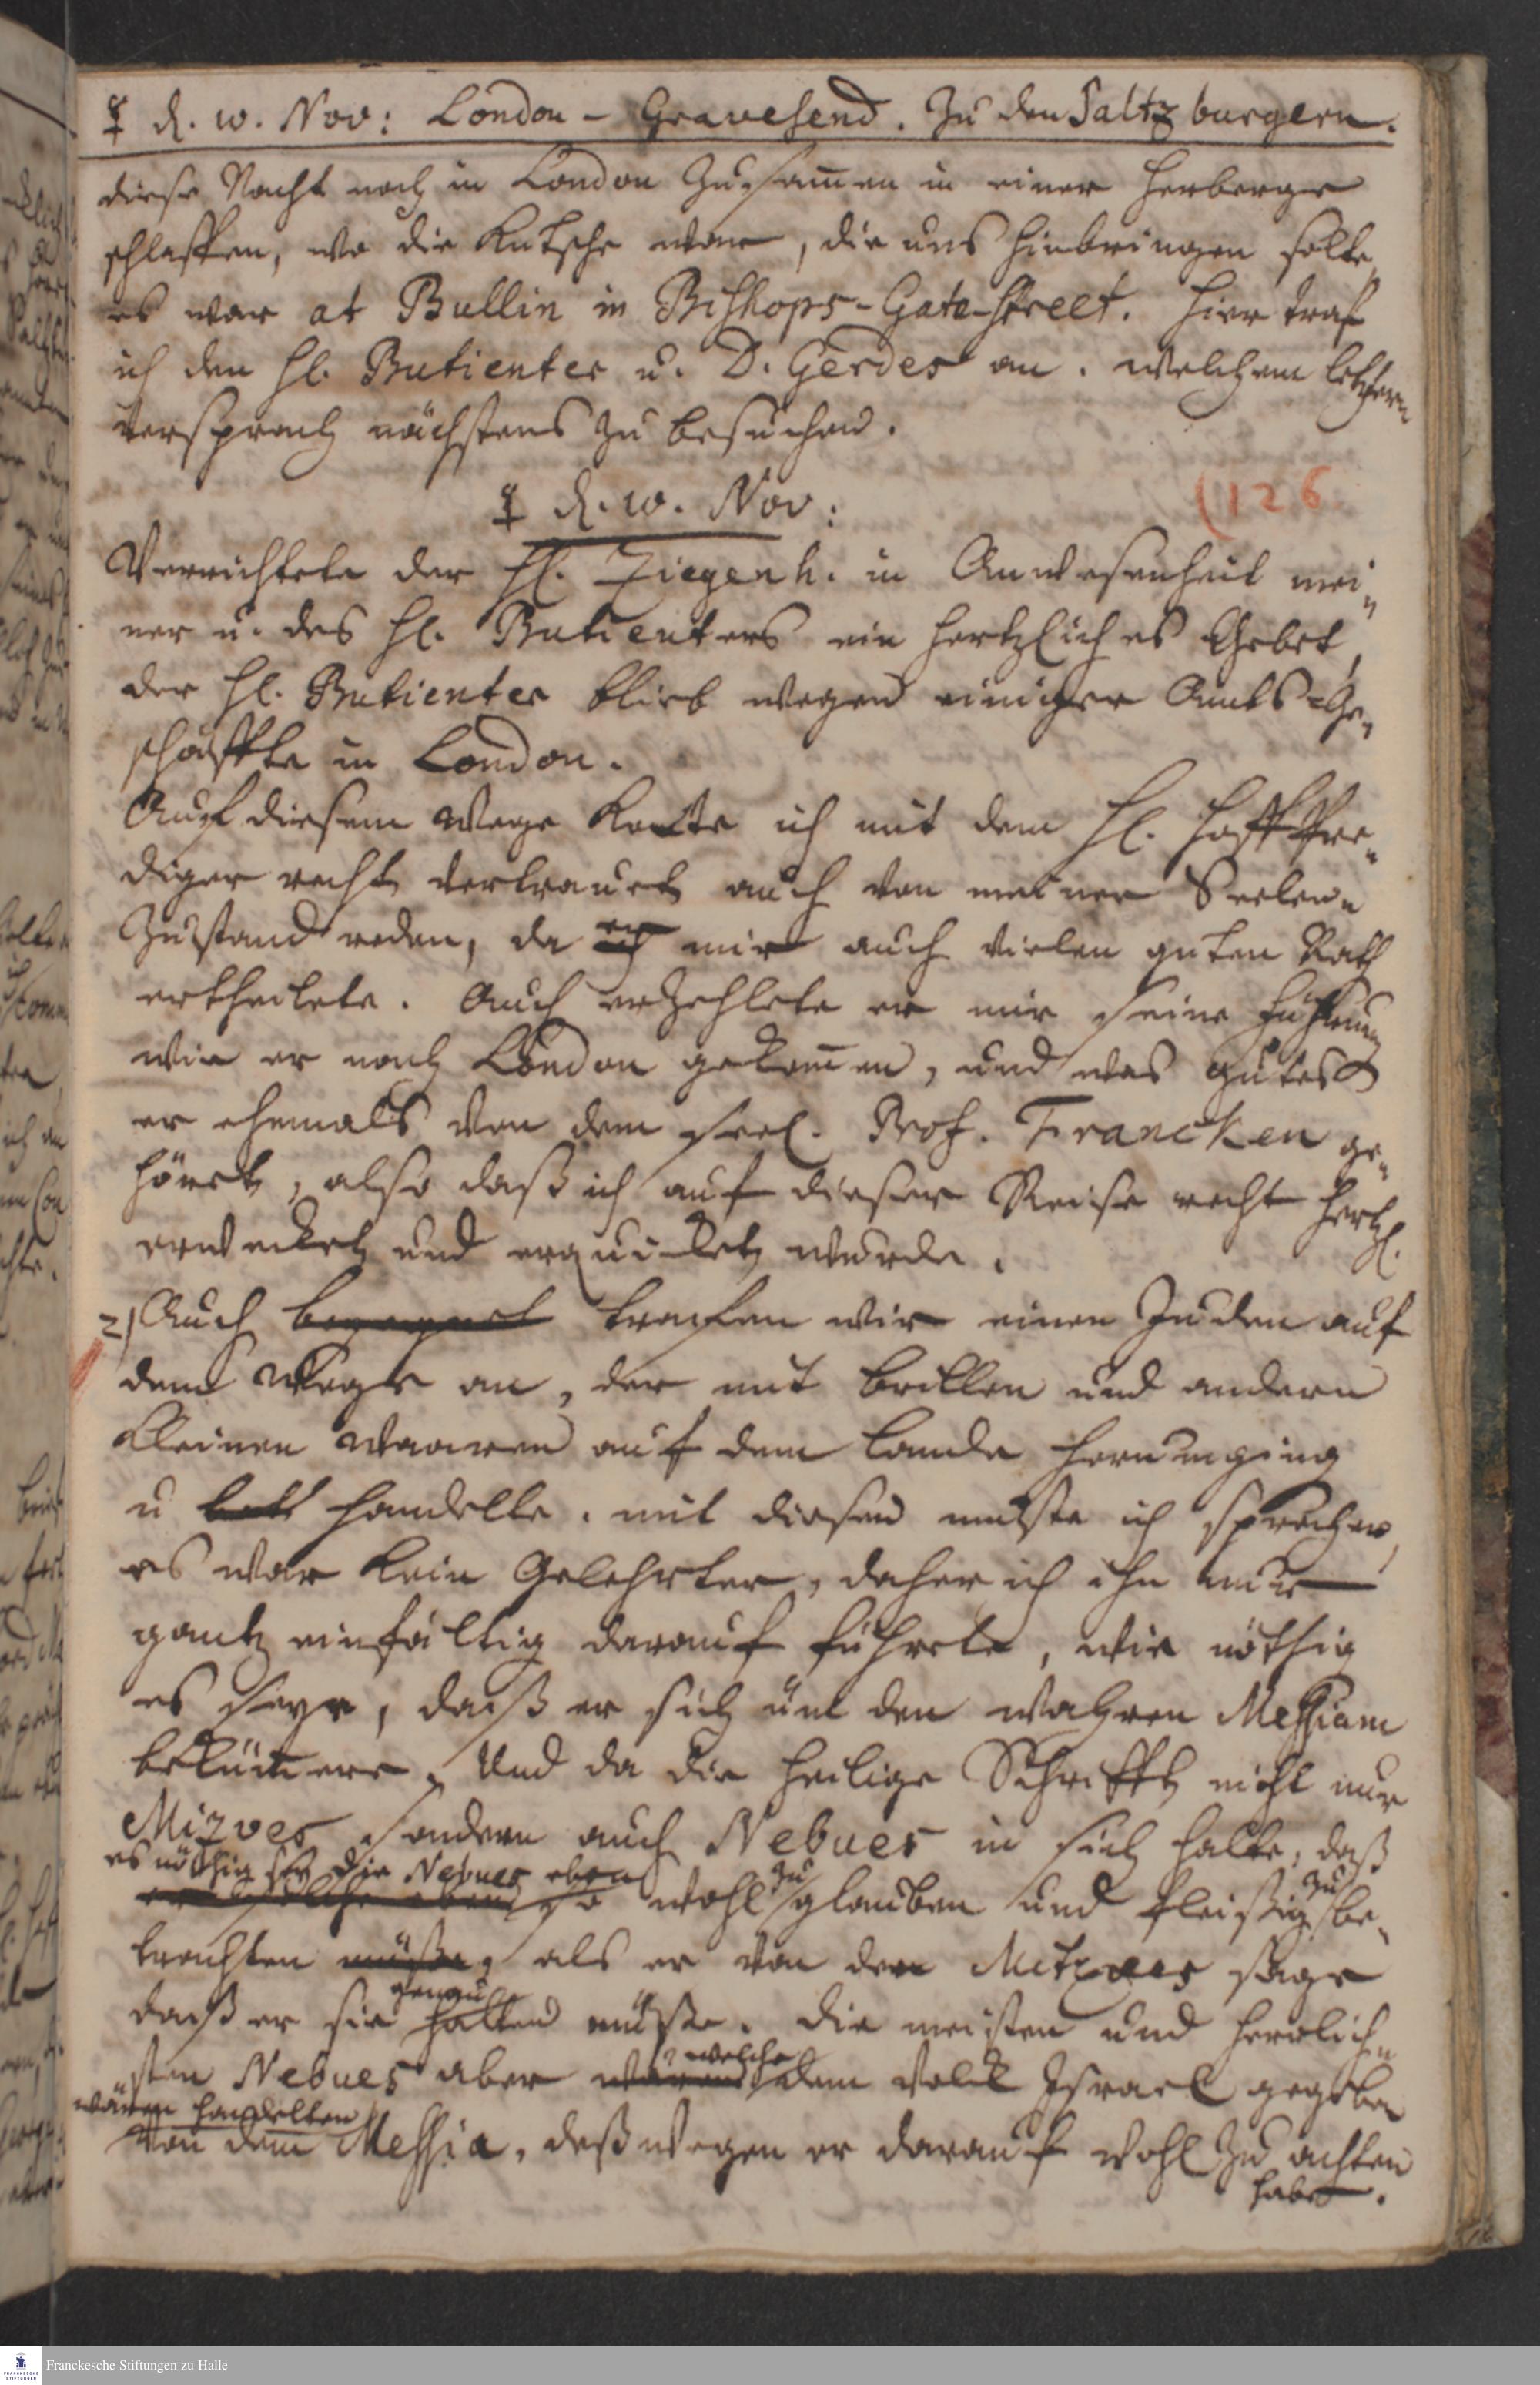 ☿ d. 10. Nov: London - Gravesend. Zu den Saltzburgern.
diese Nacht noch in London zusam̄en in einer Herberge
schlaffen, wo die Kutsche war, die uns hinbringen solte,
es war at Bullin in Bishops-Gate-street. Hier traf
ich den H. Butienter u. D. Gerdes an. welchem letztern
versprach nächstens zu besuchen.
☿ d. 10. Nov:
(126
Verrichtete der H. Ziegenh. in Anwesenheit mei„
ner u. des H. Butienters ein hertzliches Gebet,
der H. Butienter blieb wegen einiger Amts-Ge„
schäffte in London.
Auf diesem Wege konte ich mit dem H. HoffPre„
diger recht vertraut auch von meiner Seelen„
Zustand reden, da er mir auch vielen guten Rath
ertheilete. Auch erzehlete er mir seine Führung
wie er nach London gekom̄en, und was gutes
er ehemals von dem seel. Prof. Francken ge„
hört, also daß ich auf dieser Reise recht hertzl.
erwecket und erquicket wurde.
2) Auch begegnet trafen wir einen Juden auf
dem Wege an, der mit Brillen und andern
kleinen Waaren auf dem Lande herumging
u handelte. mit diesen muste ich sprechen,
es war kein Gelehrter, daher ich ihn nur
gantz einfältig darauf führete, wie nöthig
es seye, daß er sich um den wahren Messiam
beküm̄ere, Und da die heilige Schrifft nicht nur
Mizves sondern auch Nebues in sich halte, daß
es nöthig sey die Nebues eben
so wohl zu glauben und fleißig zu be„
trachten müße, als er von den Mitzves sage
genau
daß er sie halten müste. Die meisten und herrlich„
welche
sten Nebues aber waren dem Volck Israel gegeben
wären handelten
von dem Messia, deßwegen er darauf wohl zu achten
habe.
Franckesche Stiftungen zu Halle